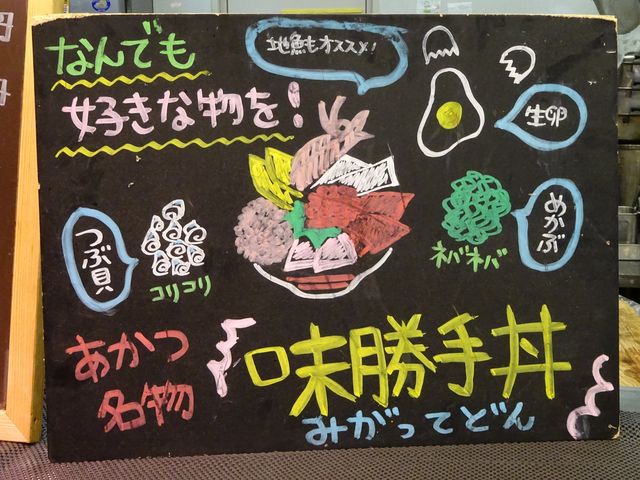 なんでも
好きな物を!
地魚もオススメ!
生卵
めかぶ
ネバネバ
つぶ貝
コリコリ
あかつ
名物
味勝手丼
みがってどん